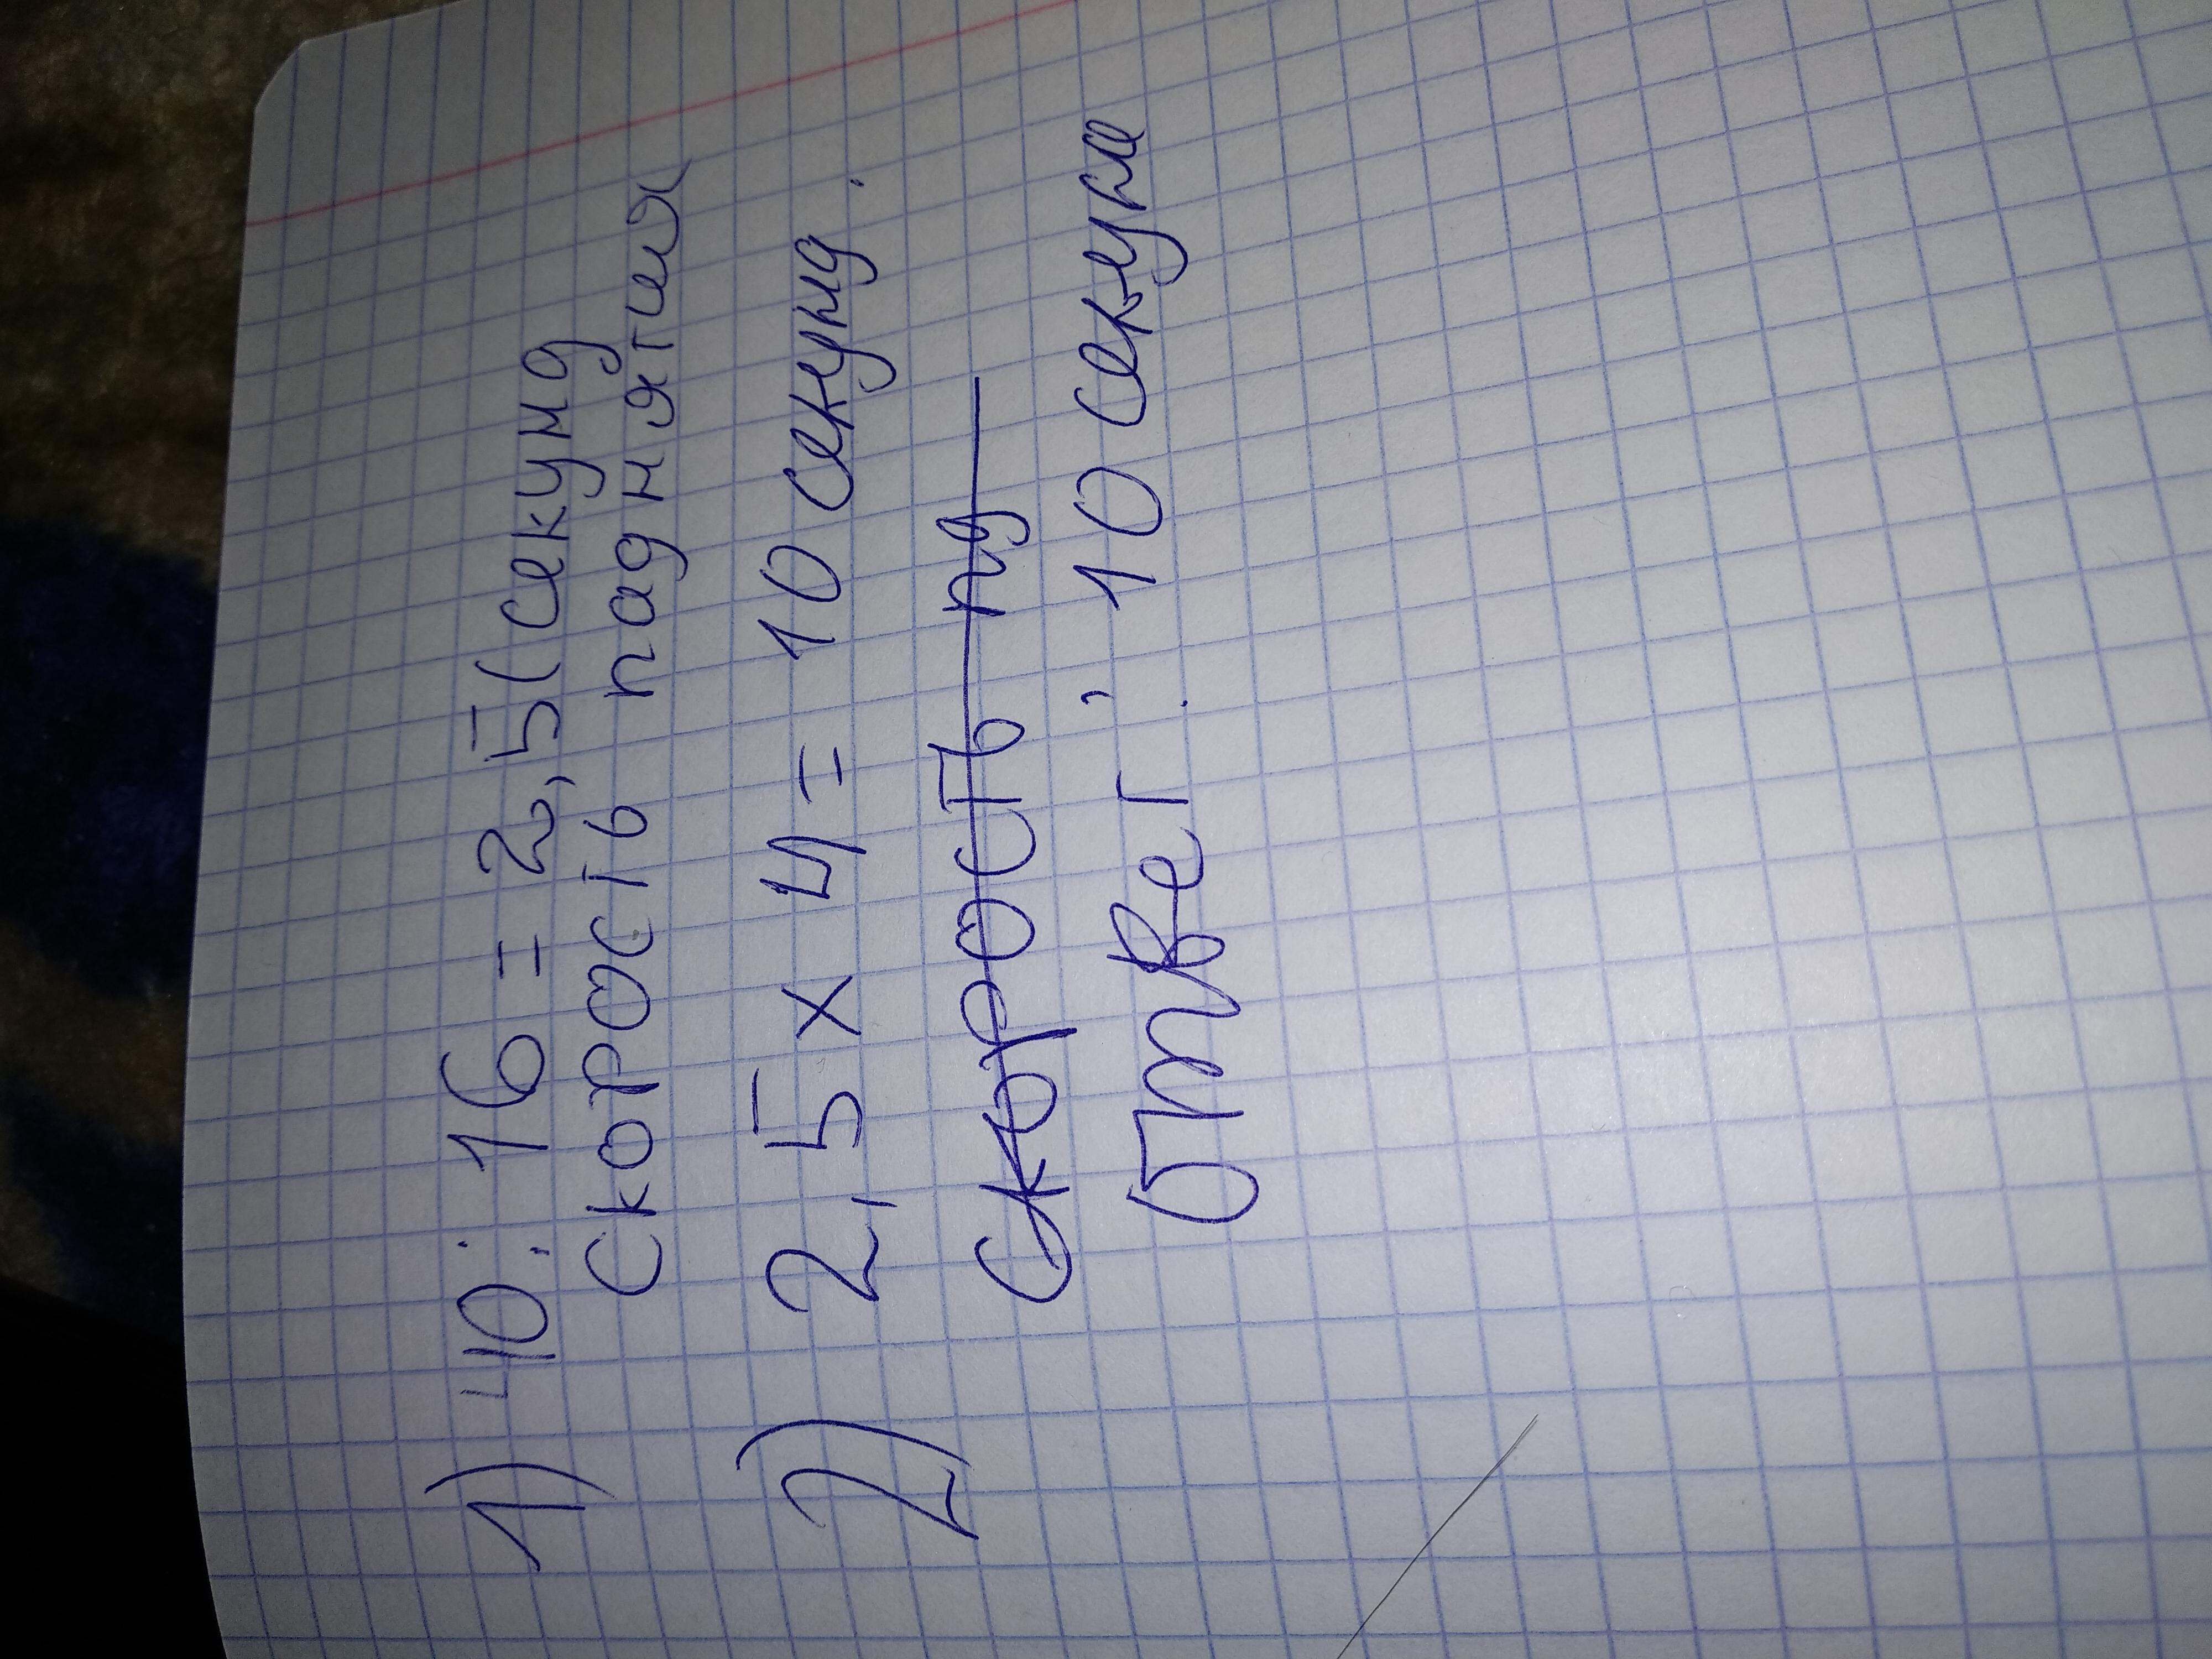 1) 40 : 16 = 2,5 (секунд
скорость паднятия
2) 2,5 х 4 = 10 секунд.
скорость пд
Ответ: 10 секунд